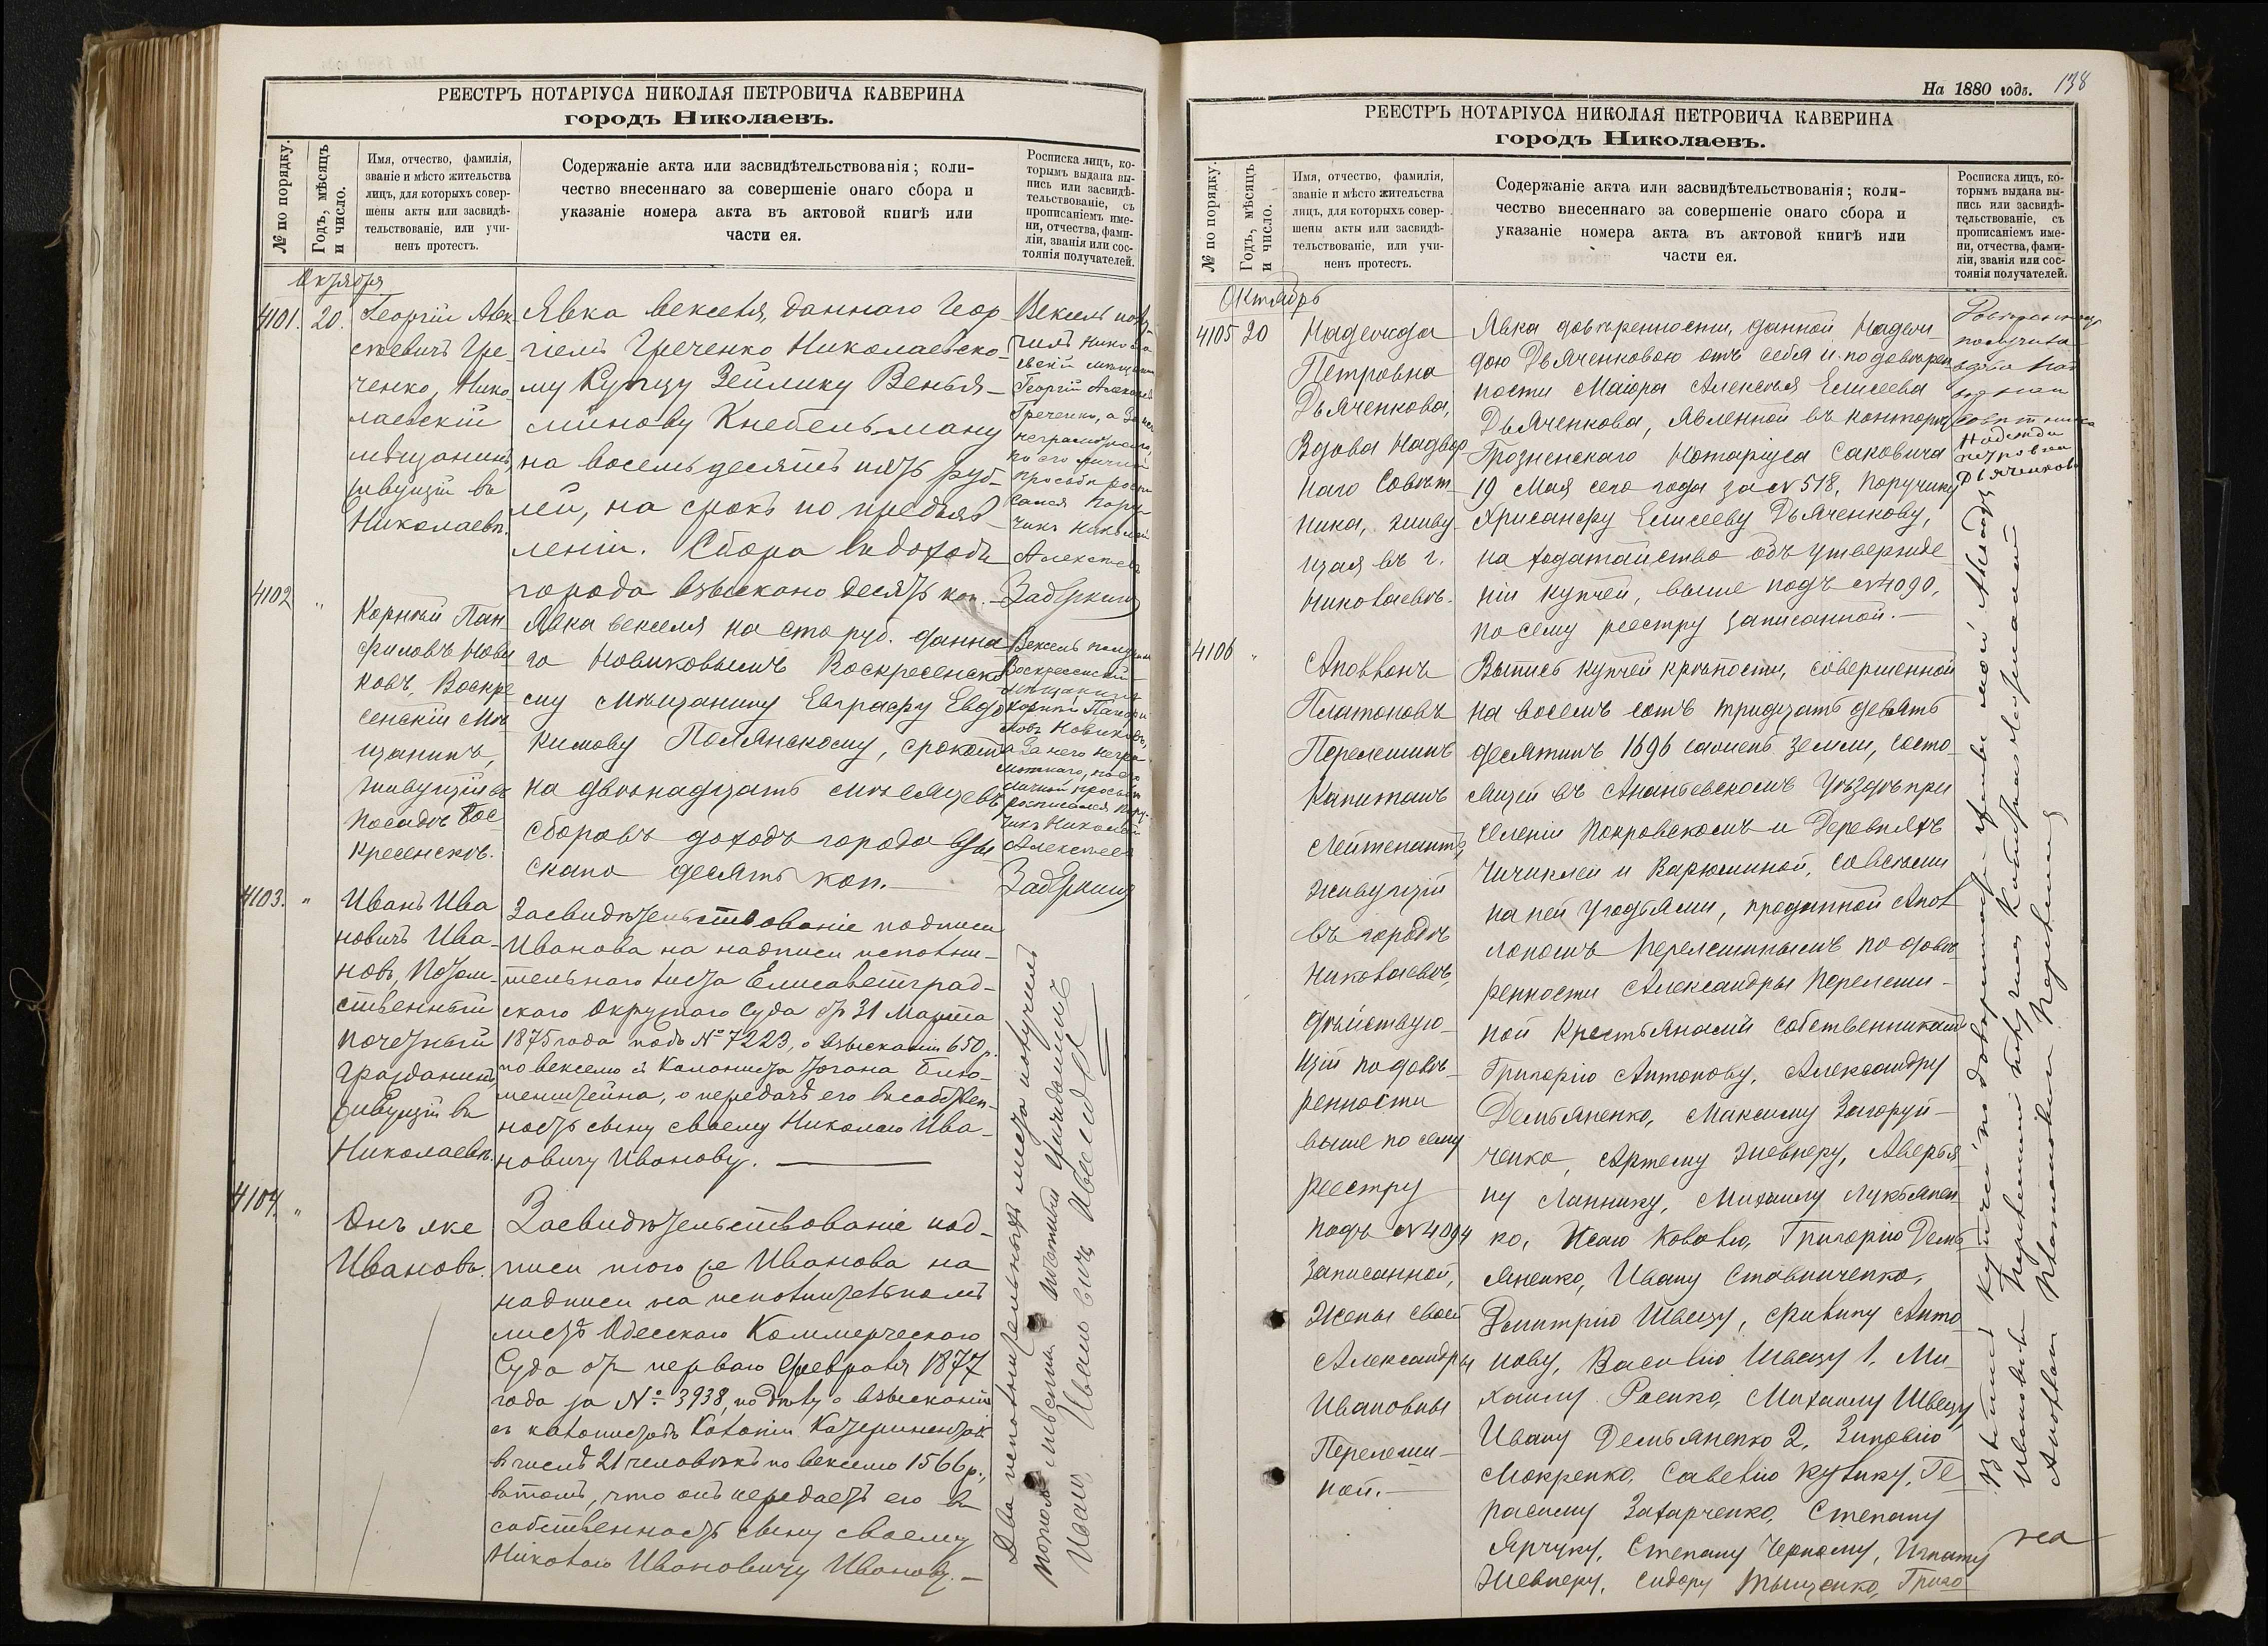 РЕЕСТРЪ НОТАРІУСА НИКОЛАЯ ПЕТРОВИЧА КАВЕРИНА
городъ Николаевъ.
№ по порядку.
Годъ, мѣсяцъ
и число.
Имя, отчество, фамилія,
званіе и мѣсто жительства
лицъ, для которыхъ совер-
шены акты или засвидѣ-
тельствованіе, или учи-
ненъ протестъ.
Содержаніе акта или засвидѣтельствованія; коли-
чество внесеннаго за совершеніе онаго сбора и
указаніе номера акта въ актовой книгѣ или
части ея.
Росписка лицъ, ко-
торымъ выдана вы-
пись или засвидѣ-
тельствованіе, съ
прописаніемъ име-
ни, отчества, фами-
ліи, званія или сос-
тоянія получателей.
Октября
4101. 20.
Георгій Алек
сѣевичъ Гре-
ченко, Нико
лаевскій
мѣщанинъ,
живущій въ
Николаевѣ.
Явка векселя, даннаго Геор-
гіемъ Греченко Николаевско-
му Купцу Зейлику Веньья-
минову Кнебельману
на восемьдесятъ пять руб-
лей, на срокъ по предъяв-
леніи. Сбора въ доходъ
города взыскано десять коп.
Вексель полу-
чилъ Никола
евскій мѣщанин
Георгій Алексѣев
Греченко, а за него
неграмотнаго,
по его личной
просьбѣ роспи
сался Пору-
чикъ Николай
Алексѣевъ
Задеркинъ
4102 "
Корнѣй Пан-
филовъ Нови
ковъ, Воскре
сенскій Мѣ
щанинъ,
живущій въ
посадѣ Вос-
кресенскѣ.
Явка векселя на сто руб. данна
го Новиковымъ Воскресенско
му Мѣщанину Евграфу Евдо
кимову Полянскому, срокомъ
на двѣнадцать мѣсяцевъ
сборовъ доходъ города взы
скано десять коп.—
Вексель получилъ
Воскресенскій
мѣщанинъ
Корнѣй Панфи
ловъ Новиковъ,
а за него негра-
мотнаго, по его
личной просьбѣ
росписался Пору-
чикъ Николай
Алексѣевъ
Задеркинъ
4103. "
Иванъ Ива
новичъ Ива-
новъ, Потом-
ственный
почетный
Гражданинъ,
живущій въ
Николаевѣ.
Засвидѣтельствованіе подписи
Иванова на надписи исполни-
тельнаго листа Елисаветград-
скаго Окружнаго Суда отъ 31 Марта
1875 года подъ № 7223, о взысканіи 650 р.
по векселю съ Колониста Іогана Блю-
менштейна, о передачѣ его въ собствен-
ность сыну своему Николаю Ива-
новичу Иванову.
4104. "
Онъ же
Ивановъ.
Засвидѣтельствованіе под-
писи того же Иванова на
надписи на исполнительномъ
листѣ Одесскаго Коммерческаго
Суда отъ перваго Февраля 1877
года за № 3938, по дѣлу о взысканіи
съ колонистовъ Колоніи Катериненталь
въ числѣ 21 человѣкъ по векселю 1566 р.,
въ томъ, что онъ передаетъ его въ
собственность сыну своему
Николаю Ивановичу Иванову.—
Два исполнительныхъ листа получилъ
потомственный почетный гражданинъ
Иванъ Ивановичъ Ивановъ
На 1880 годъ. 138
РЕЕСТРЪ НОТАРІУСА НИКОЛАЯ ПЕТРОВИЧА КАВЕРИНА
городъ Николаевъ.
№ по порядку.
Годъ, мѣсяцъ
и число.
Имя, отчество, фамилія,
званіе и мѣсто жительства
лицъ, для которыхъ совер-
шены акты или засвидѣ-
тельствованіе, или учи-
ненъ протестъ.
Содержаніе акта или засвидѣтельствованія; коли-
чество внесеннаго за совершеніе онаго сбора и
указаніе номера акта въ актовой книгѣ или
части ея.
Росписка лицъ, ко-
торымъ выдана вы-
пись или засвидѣ-
тельствованіе, съ
прописаніемъ име-
ни, отчества, фами-
ліи, званія или сос-
тоянія получателей.
Октябрь
4105 20
Надежда
Петровна
Дьяченкова,
Вдова Надвор
наго Совѣт
ника, живу-
щая въ г.
Николаевѣ.
Явка довѣренности, данной Надеж
дою Дьяченковою отъ себя и по довѣрен
ности Маіора Алексѣя Елисеева
Дьяченкова, явленной въ конторѣ
Грозненскаго Нотаріуса Саковича
19 Мая сего года за № 518, Поручику
Хрисанфу Елисееву Дьяченкову,
на ходатайство объ утвержде
ніи купчей, выше подъ № 4090,
по сему реестру записанной.—
получила
вдова Над
Совѣтника
Надежда
Петровна
Дьяченкова
4106 "
Аполлонъ
Платоновъ
Перелешинъ
Капитанъ
Лейтенантъ,
живущій
въ городѣ
Николаевѣ,
дѣйствую-
щій по довѣ-
ренности
выше по сему
реестру
подъ № 4094
записанной,
жены своей
Александры
Ивановны
Перелеши-
ной.—
Выпись купчей крѣпости, совершенной
на восемь сотъ тридцать девять
десятинъ 1696 сажень земли, состо
ящей въ Ананьевскомъ Уѣздѣ при
селеніи Покровскомъ и Деревняхъ
Чичиклеи и Варюшиной, со всѣми
на ней угодьями, проданной Апол
лономъ Перелешинымъ по довѣ
ренности Александры Перелеши-
ной Крестьянамъ собственникамъ
Григорію Антонову, Александру
Демьяненко, Максиму Загоруй-
ченко, Артему Шевнеру, Аверья
ну Ланнику, Михаилу Лукьянен
ко, Исаю Ковалю, Григорію Демь
яненко, Ивану Ставниченко,
Дмитрію Швецу, Филипу Анто
нову, Василію Швецу 1, Ми-
хаилу Раенко, Михаилу Швецу
Ивану Демьяненко 2, Зиновію
Мокренко, Савелію Кулику, Ге
расиму Захарченко, Степану
Ярчуку, Степану Черному, Игнату
Шевнеру, Сидору Тыщенко, Григо
Выпись купчей по довѣренности жены моей Александры
Ивановны Перелешиной получилъ Капитанъ Лейтенантъ
Аполлонъ Платоновичъ Перелешинъ